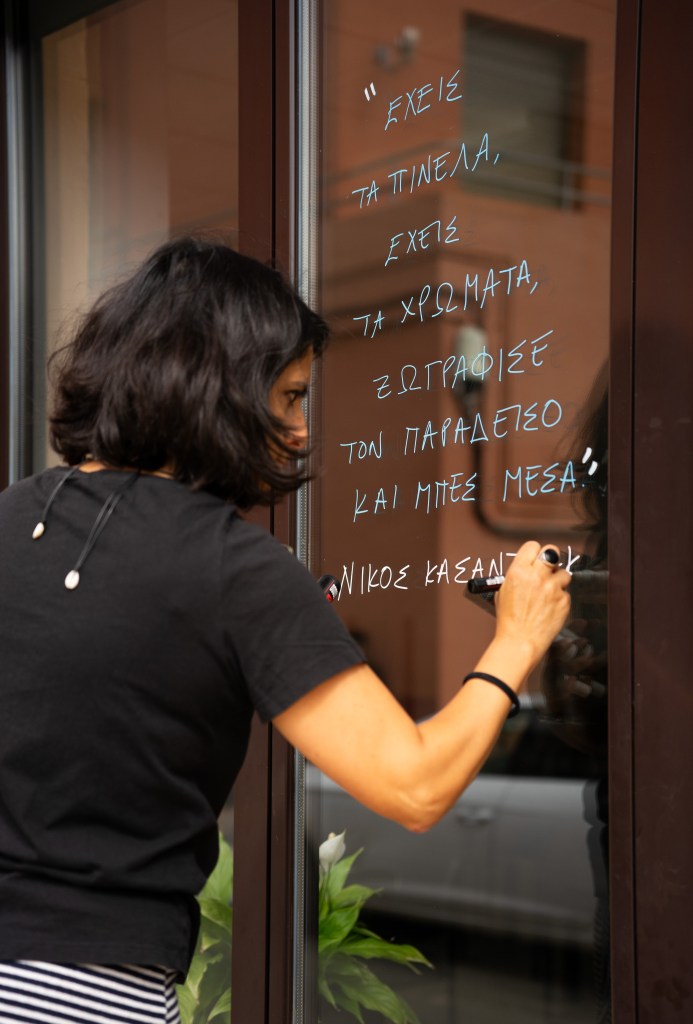 "ΕΧΕΙΣ
ΤΑ ΠΙΝΕΛΑ,
ΕΧΕΙΣ
ΤΑ ΧΡΩΜΑΤΑ,
ΖΩΓΡΑΦΙΣΕ
ΤΟΝ ΠΑΡΑΔΕΙΣΟ
ΚΑΙ ΜΠΕΣ ΜΕΣΑ."
ΝΙΚΟΣ